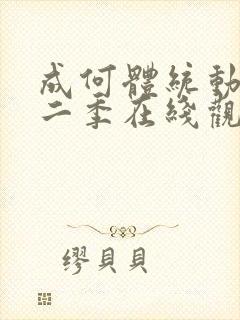 成何體統動
二季在綫觀
繆貝貝